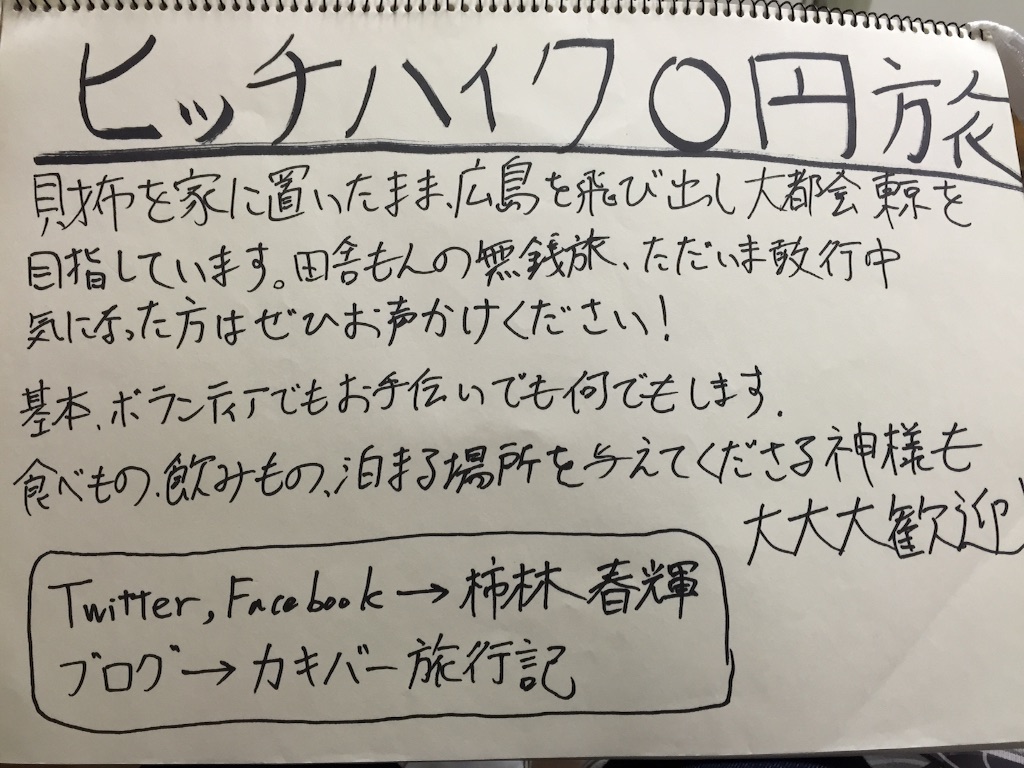 ヒッチハイク0円旅
財布を家に置いたまま、広島を飛び出し大都会東京を
目指しています。田舎もんの無銭旅、ただいま敢行中
気になった方はぜひお声かけください!
基本、ボランティアでもお手伝いでも何でもします.
食べもの、飲みもの、泊まる場所を与えてくださる神様も
大大大歓迎
Twitter, Facebook→柿林 春輝
ブログ→カキバー旅行記